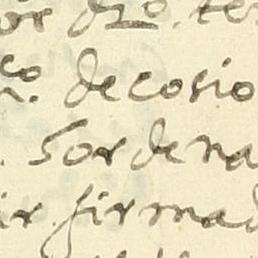 or dho. te
co. de cosio
. Sor de na
ir. firmad